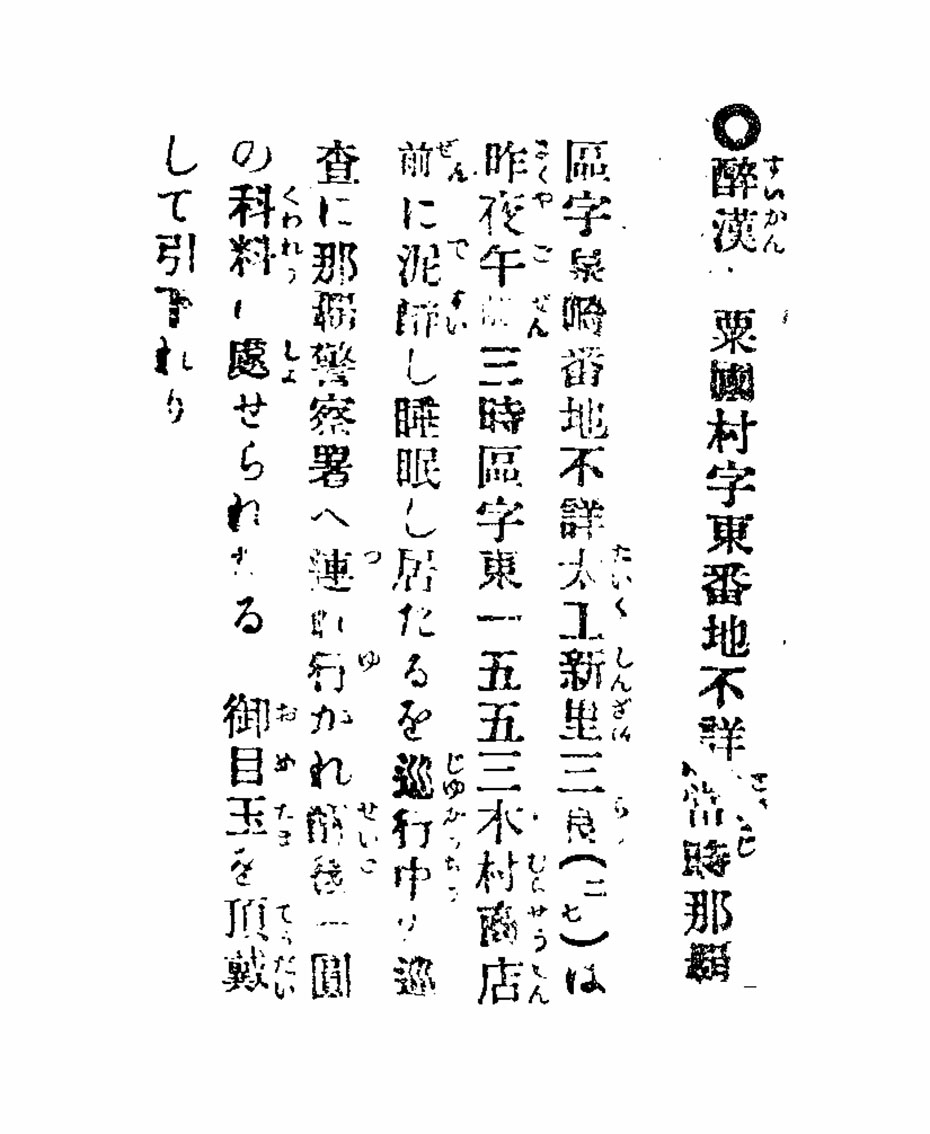 ◎醉漢 粟國村字東番地不詳當時那覇
區字泉崎番地不詳大工新里三良(二七)は
昨夜午前三時區字東一五五三木村商店
前に泥醉し睡眠し居たるを巡行中の巡
査に那覇警察署へ連れ行かれ醒後一圓
の科料に處せられたる 御目玉を頂戴
して引下れり